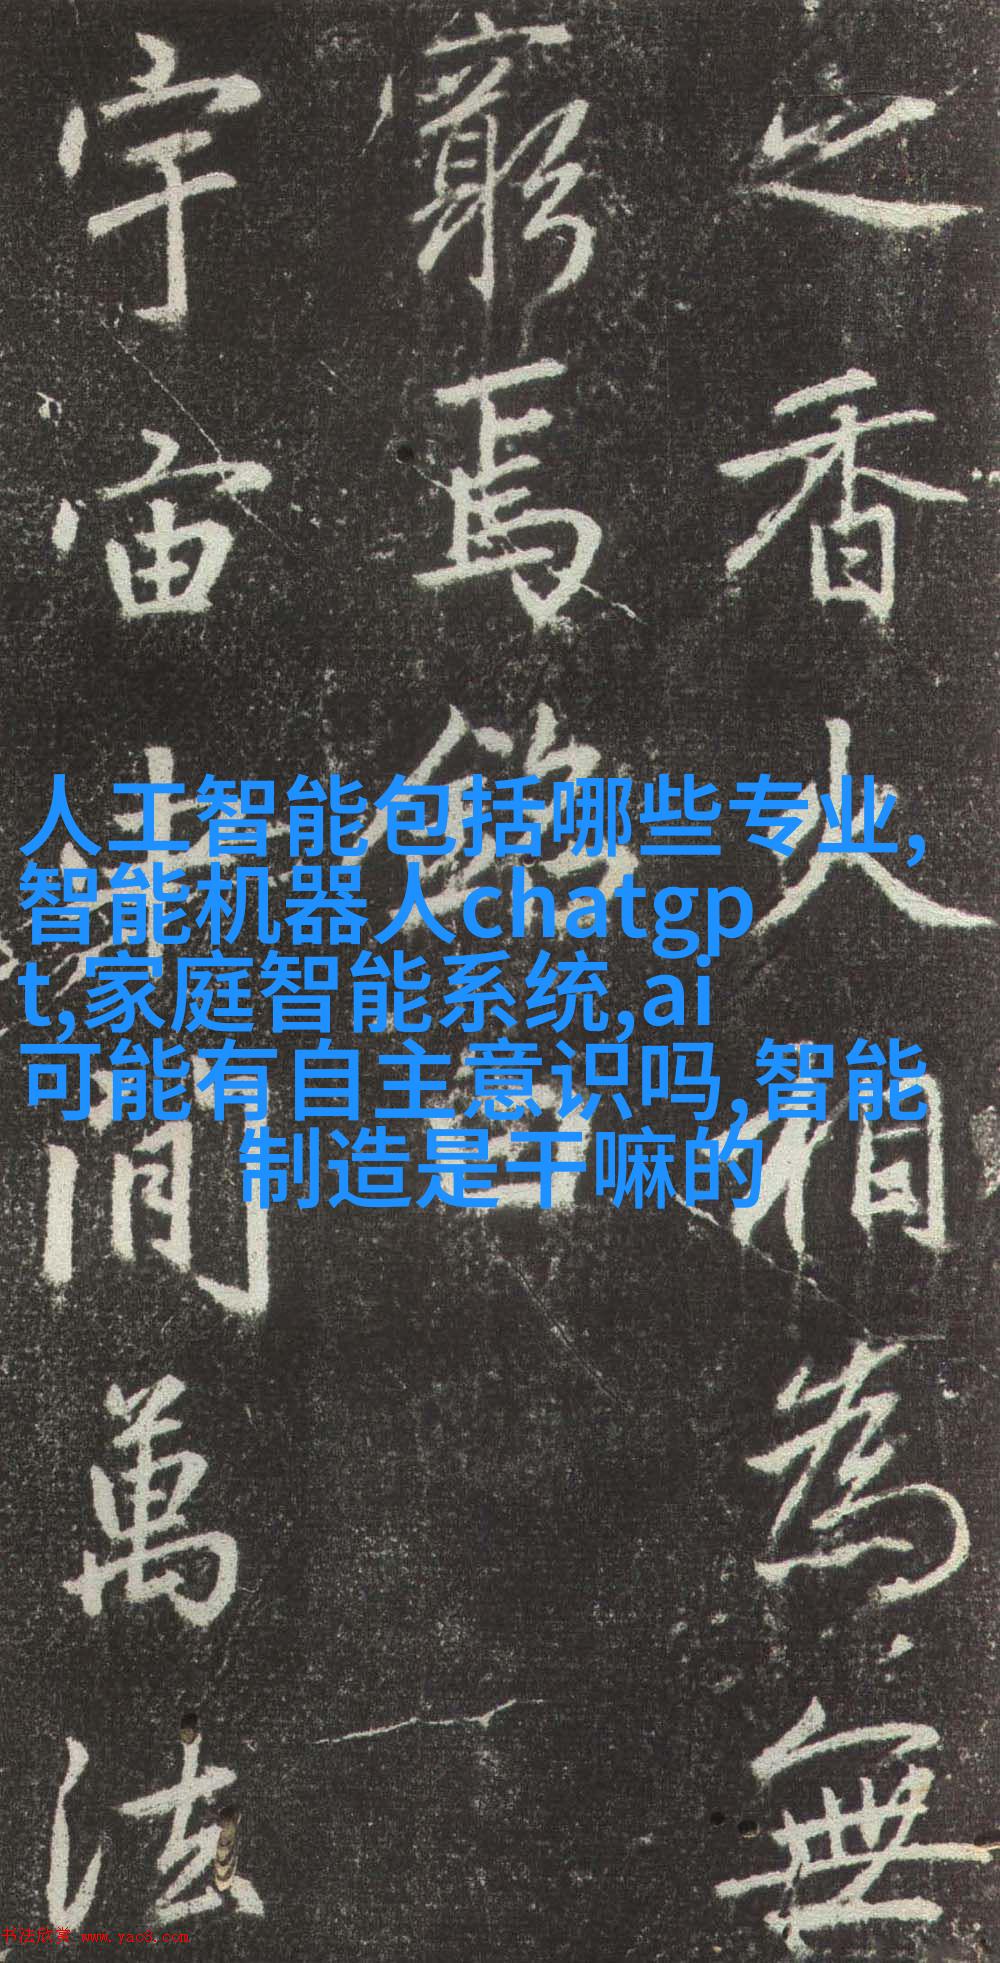 之香火相為無
窮焉能
宇宙
間萬法
人工智能包括哪些专业,
智能机器人chatgp
t,家庭智能系统,ai
可能有自主意识吗,智能
制造是干嘛的
书法欣赏 www.yac8.com